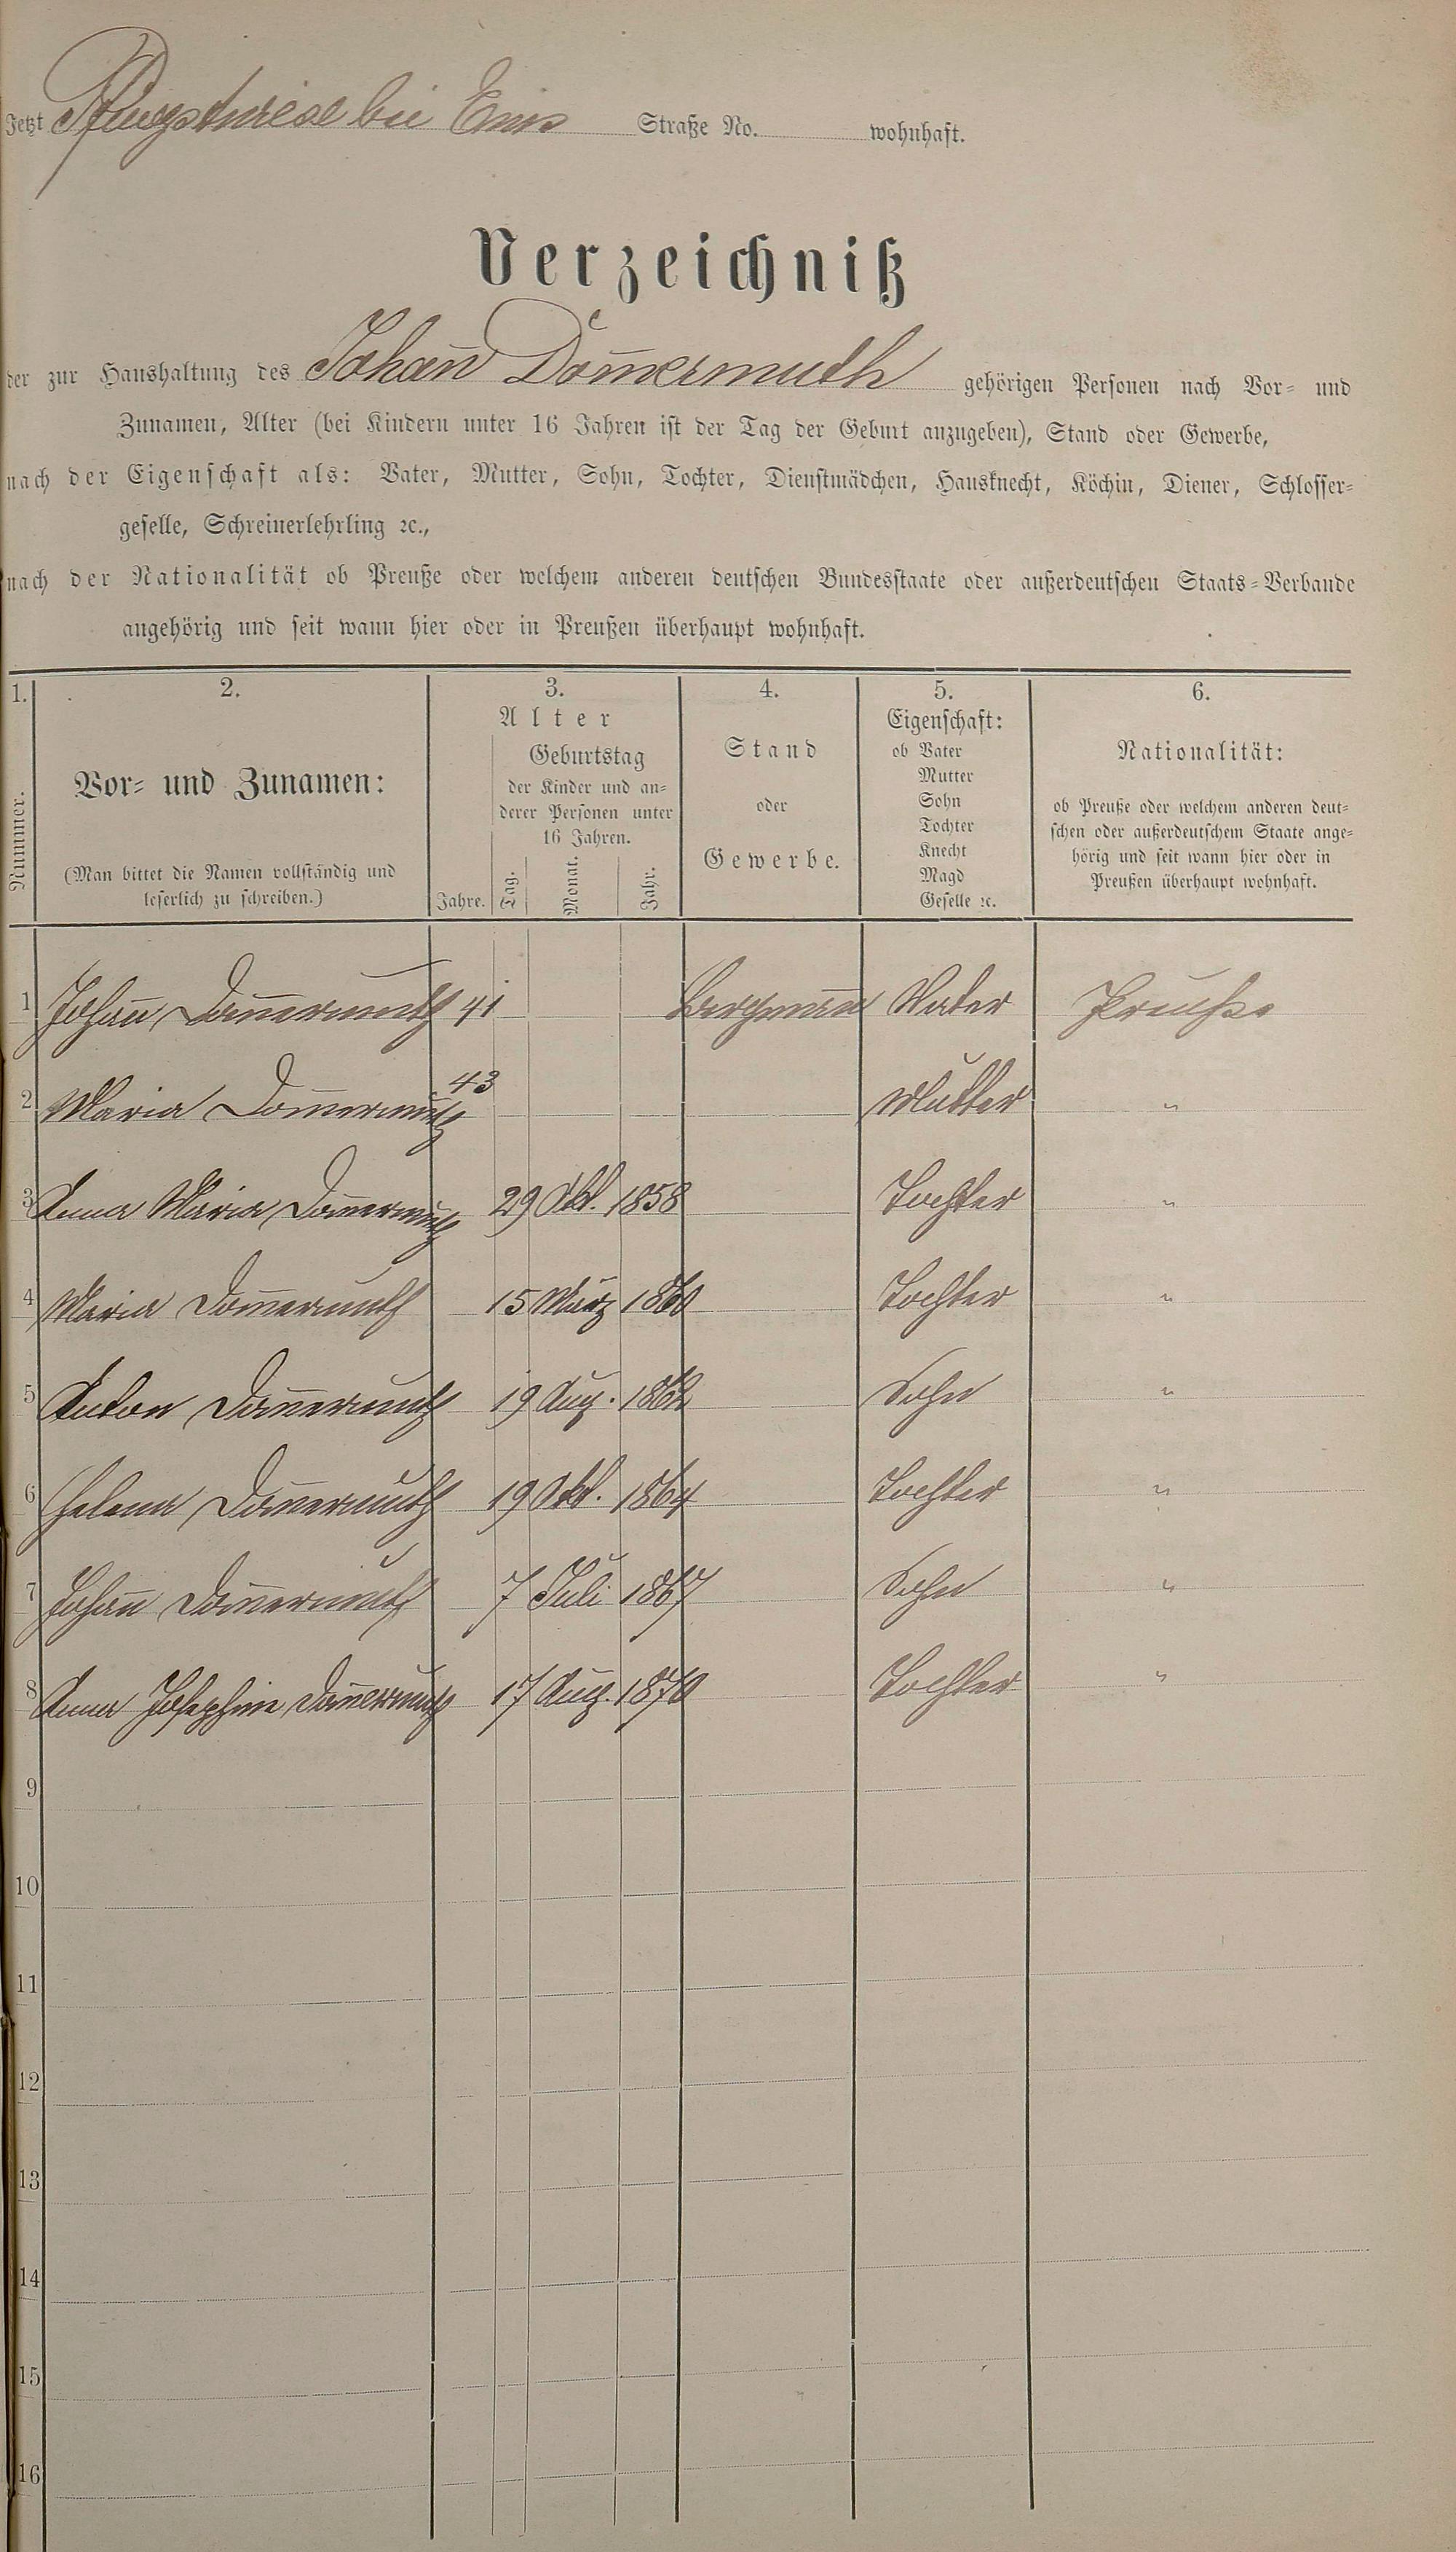 Jetzt Pfingstwiese bei Ems Straße No. wohnhaft.
Verzeichniß
der zur Haushaltung des Johan̅ Dom̅ermuth gehörigen Personen nach Vor- und
Zunamen, Alter (bei Kindern unter 16 Jahren ist der Tag der Geburt anzugeben), Stand oder Gewerbe,
nach der Eigenschaft als: Vater, Mutter, Sohn, Tochter, Dienstmädchen, Hausknecht, Köchin, Diener, Schlosser-
geselle, Schreinerlehrling ꝛc.,
nach der Nationalität ob Preuße oder welchem anderen deutschen Bundesstaate oder außerdeutschen Staats-Verbande
angehörig und seit wann hier oder in Preußen überhaupt wohnhaft.
1. 2. 3. 4. 5. 6.
Nummer.
Vor- und Zunamen:
(Man bittet die Namen vollständig und
leserlich zu schreiben.)
Alter
Jahre.
Geburtstag
der Kinder und an-
derer Personen unter
16 Jahren.
Tag. Monat. Jahr.
Stand
oder
Gewerbe.
Eigenschaft:
ob Vater
Mutter
Sohn
Tochter
Knecht
Magd
Geselle ꝛc.
Nationalität:
ob Preuße oder welchem anderen deut-
schen oder außerdeutschem Staate ange-
hörig und seit wann hier oder in
Preußen überhaupt wohnhaft.
1 Johan̅ Dom̅ermuth 41 Bergmann Vater Preuße
2 Maria Dom̅ermuth 43 Mutter "
3 Anna Maria Dom̅ermuth 29 Okt. 1858 Tochter "
4 Maria Dom̅ermuth 15 März 1860 Tochter "
5 Anton Dom̅ermuth 19 Aug. 1862 Sohn "
6 Helena Dom̅ermuth 19 Okt. 1864 Tochter "
7 Johan̅ Dom̅ermuth 7 Juli 1867 Sohn "
8 Anna Josephine Dom̅ermuth 17 Aug. 1870 Tochter "
9
10
11
12
13
14
15
16